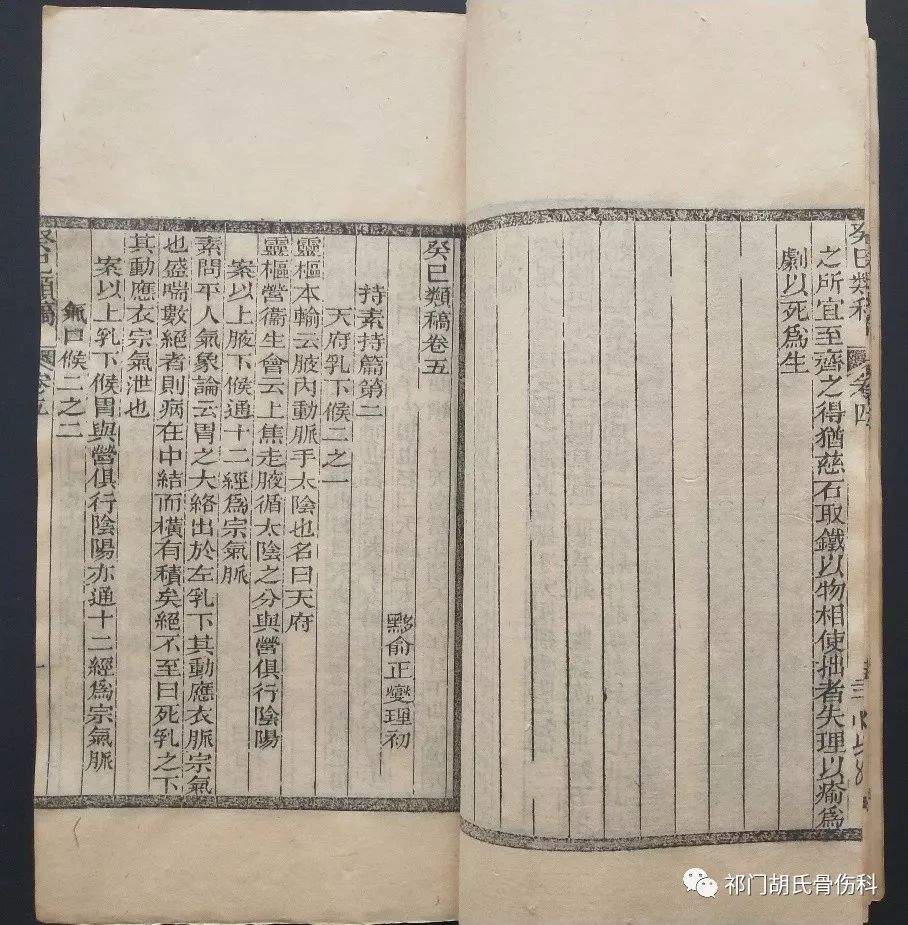 癸巳類稿
卷四
之所宜至齊之得猶慈石取鐵以物相使拙者失理以瘉爲
劇以死爲生
癸巳類稿卷五
黟俞正燮理初
持素持篇第二
天府乳下候二之一
靈樞本輸云腋內動脈手太陰也名曰天府
靈樞營衞生會云上焦走腋循太陰之分與營俱行陰陽
案以上腋下候通十二經爲宗氣脈
素問平人氣象論云胃之大絡出於左乳下其動應衣脈宗氣
也盛喘數絕者則病在中結而橫有積矣絕不至曰死乳之下
其動應衣宗氣泄也
案以上乳下候胃與營俱行陰陽亦通十二經爲宗氣脈
氣口候二之二
癸巳類稿
卷五
一
祁门胡氏骨伤科